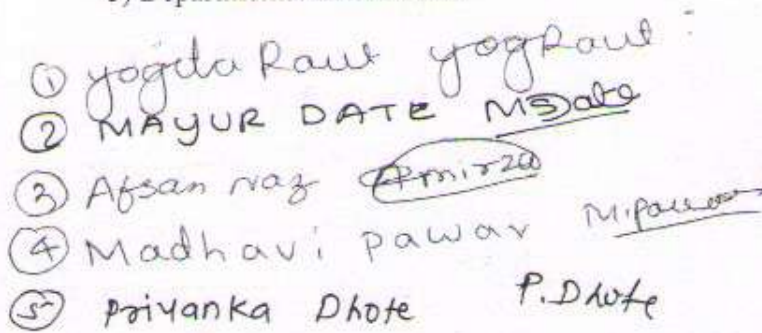 ① yogita Raut yogRaut
② MAYUR DATE MSDate
③ Afsan naz Amirza
④ Madhavi pawar M.pawar
⑤ Priyanka Dhote P.Dhote